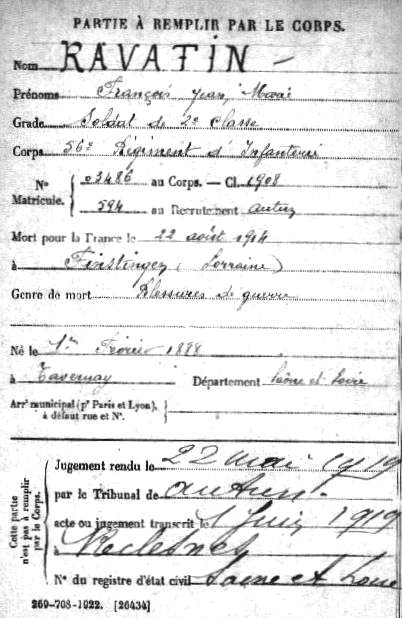 PARTIE À REMPLIR PAR LE CORPS.
Nom RAVATIN
Prénoms François Jean, Marie
Grade Soldat de 2e classe
Corps 56e Régiment d'Infanterie
No Matricule. { 03486 au Corps. — Cl. 1908
594 au Recrutement Autun
Mort pour la France le 22 août 1914
à Finstingen (Lorraine)
Genre de mort Blessures de guerre
Né le 1er Février 1888
à Tavernay Département Saône et Loire
Arrt municipal (pr Paris et Lyon), à défaut rue et No.
Cette partie n'est pas à remplir par le Corps.
Jugement rendu le 22 mai 1919
par le Tribunal de Autun.
acte ou jugement transcrit le 1 Juin 1919
à Reclesnes
No du registre d'état civil Saone et Loire
269-708-1922. [26434]